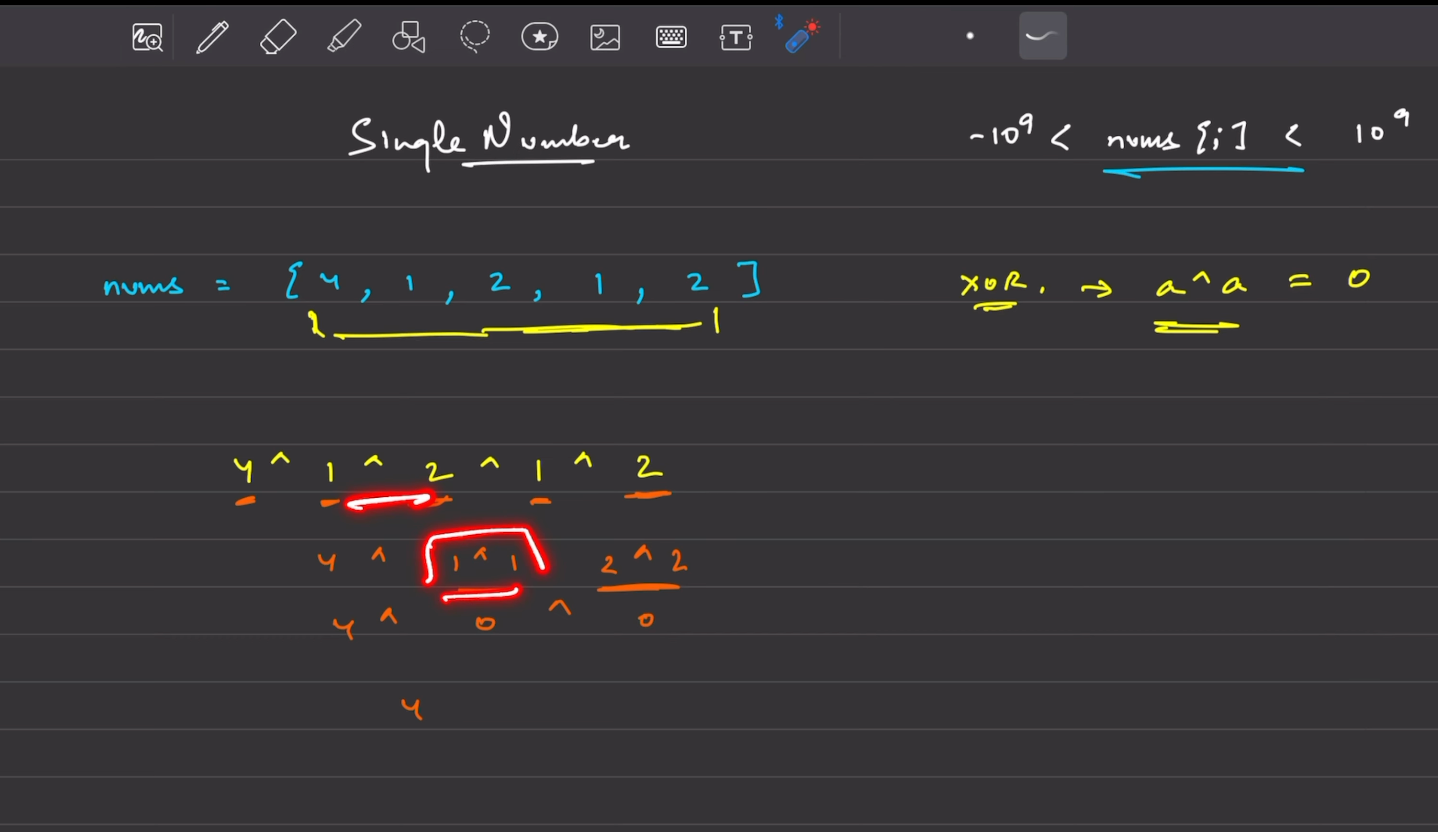 Single Number
-10^9 < nums [i] < 10^9
nums = [ 4 , 1 , 2 , 1 , 2 ]
XOR. → a ^ a = 0
4 ^ 1 ^ 2 ^ 1 ^ 2
4 ^ 1 ^ 1 2 ^ 2
4 ^ 0 ^ 0
4